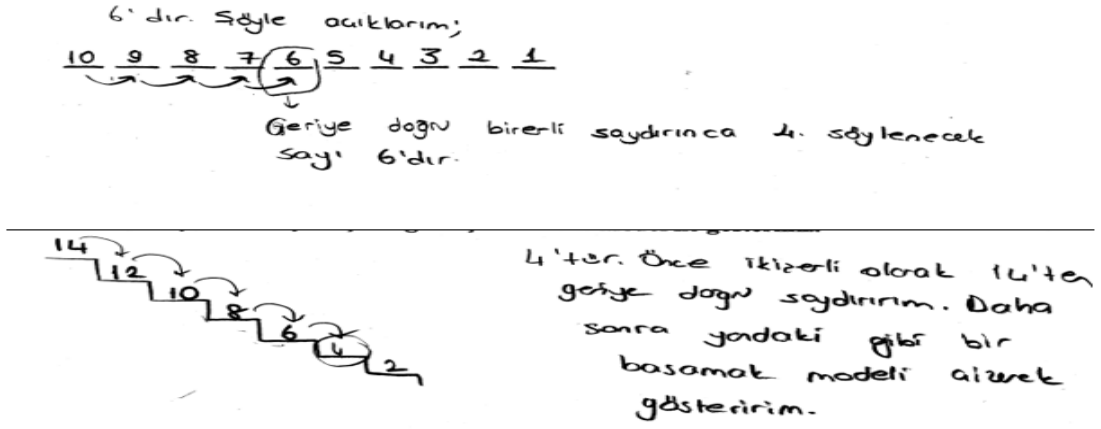 6'dır. Şöyle açıklarım;
10 9 8 7 6 5 4 3 2 1
Geriye doğru birerli saydırınca 4. söylenecek
sayı 6'dır.
14
12
10
8
6
4
2
4'tür. Önce ikizerli olarak 14'ten
geriye doğru saydırırım. Daha
sonra yandaki gibi bir
basamak modeli çizerek
gösteririm.